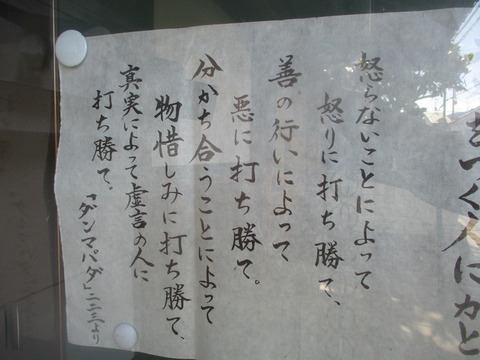 怒らないことによって
怒りに打ち勝て、
善の行いによって
悪に打ち勝て。
分かち合うことによって
物惜しみに打ち勝て、
真実によって虚言の人に
打ち勝て、
「ダンマパダ」二二三より